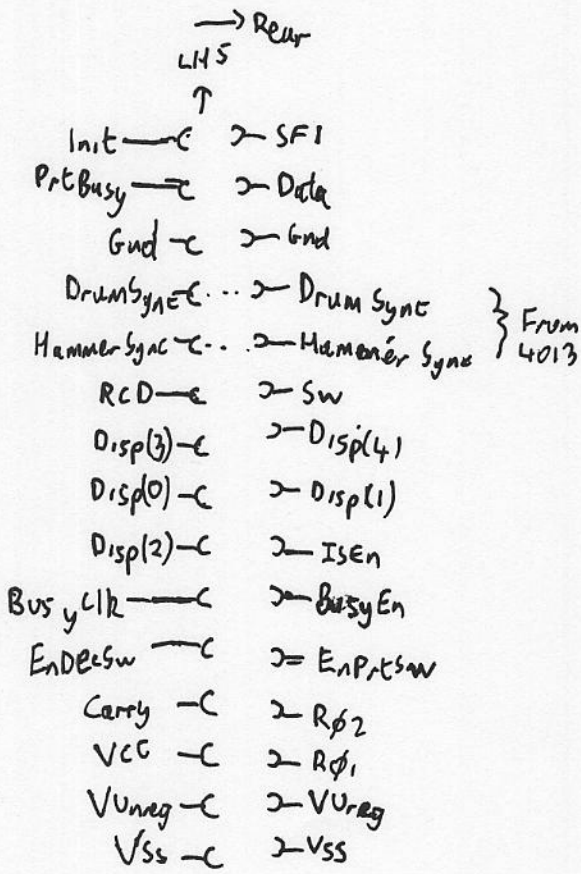 Rear
LHS
Init SFI
PrtBusy Data
Gnd Gnd
DrumSync Drum Sync
HammerSync Hammer Sync From 4013
RCD Sw
Disp(3) Disp(4)
Disp(0) Disp(1)
Disp(2) IsEn
BusyClk BusyEn
EnDecSw EnPrtSw
Carry Rφ2
VCC Rφ1
VUnreg VUreg
VSS VSS